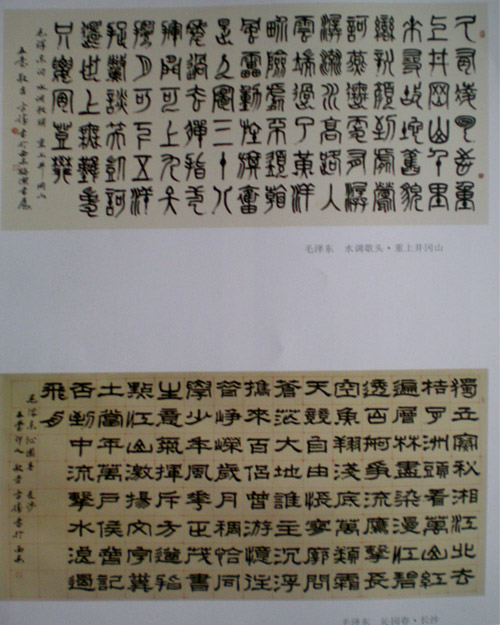 久有凌雲志重
上井岡山千里
來尋故地舊貌
變新顏到處鶯
歌燕舞更有潺
潺流水高路入
雲端過了黃洋
界險處不須看
風雷動旌旗奮
是人寰三十八
年過去彈指一
揮間可上九天
攬月可下五洋
捉鱉談笑凱歌
還世上無難事
只要肯登攀
毛澤東詞水調歌頭 重上井岡山
毛泽东 水调歌头·重上井冈山
獨立寒秋湘江北去
桔子洲頭看萬山紅
遍層林盡染漫江碧
透百舸爭流鷹擊長
空魚翔淺底萬類霜
天競自由悵寥廓問
蒼茫大地誰主沉浮
攜來百侶曾游憶往
昔崢嶸歲月稠恰同
學少年風華正茂書
生意氣揮斥方遒指
點江山激揚文字糞
土當年萬戶侯曾記
否到中流擊水浪遏
飛舟
毛澤東沁園春 長沙
毛泽东 沁园春·长沙